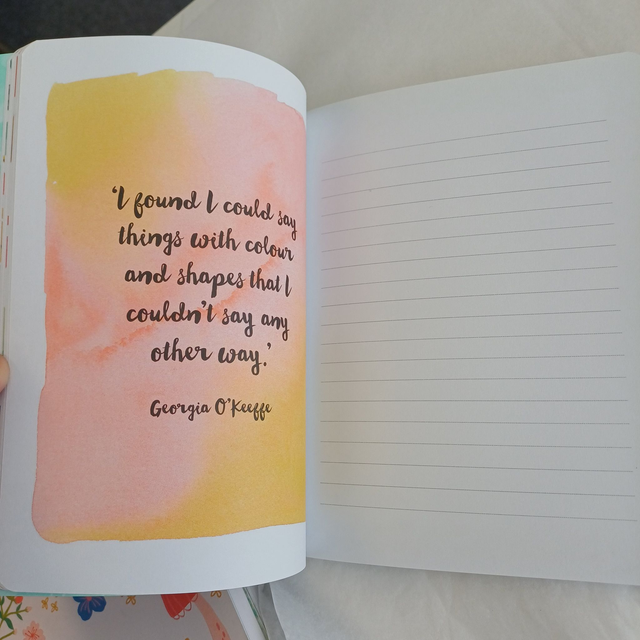 ‘I found I could say
things with colour
and shapes that I
couldn’t say any
other way.’
Georgia O’Keeffe